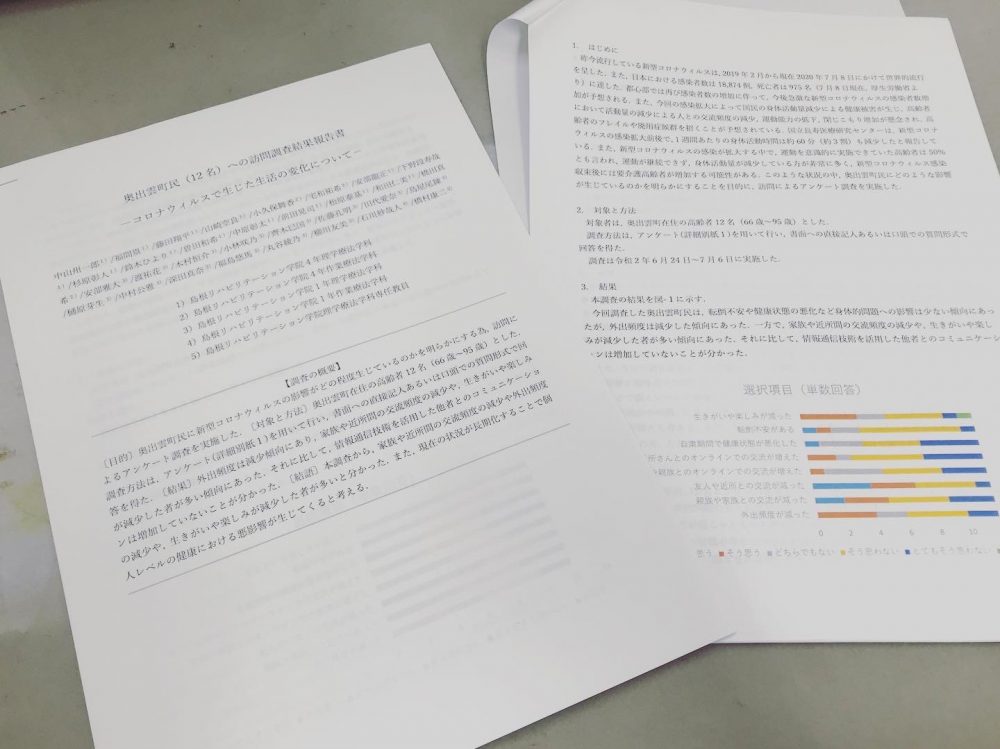 奥出雲町民（12 名）への訪問調査結果報告書
―コロナウイルスで生じた生活の変化について―
1）島根リハビリテーション学院4年理学療法学科
2）島根リハビリテーション学院4年作業療法学科
3）島根リハビリテーション学院1年理学療法学科
4）島根リハビリテーション学院1年作業療法学科
5）島根リハビリテーション学院理学療法学科専任教員
【調査の概要】
〔目的〕奥出雲町民に新型コロナウイルスの影響がどの程度生じているのかを明らかにする為、訪問に
よるアンケート調査を実施した．〔対象と方法〕奥出雲町在住の高齢者 12 名（66 歳～95 歳）とした．
調査方法は，アンケート(詳細別紙 1)を用いて行い，書面への直接記人あるいは口頭での質問形式で回
答を得た．〔結果〕外出頻度は減少傾向にあり，家族や近所間の交流頻度の減少や，生きがいや楽しみ
が減少した者が多い傾向にあった．それに比して，情報通信技術を活用した他者とのコミュニケーショ
ンは増加していないことが分かった．〔結語〕本調査から，家族や近所間の交流頻度の減少や外出頻度
の減少や，生きがいや楽しみが減少した者が多いと分かった．また，現在の状況が長期化することで個
人レベルの健康における悪影響が生じてくると考える．
1. はじめに
昨今流行している新型コロナウィルスは，2019 年 2 月から現在 2020 年 7 月 8 日にかけて世界的流行
を呈した．また，日本における感染者数は 18,874 例，死亡者は 975 名（7 月 8 日現在，厚生労働省よ
り）に達した．都心部では再び感染者数の増加に伴って，今後急激な新型コロナウィルスの感染者数増
加が予想される．また，今回の感染拡大によって国民の身体活動量減少による健康被害が生じ，高齢者
において活動量の減少による人との交流頻度の減少，運動能力の低下，閉じこもり増加が懸念され，高
齢者のフレイルや廃用症候群を招くことが予想されている．国立長寿医療研究センターは，新型コロナ
ウィルスの感染拡大前後で，1 週間あたりの身体活動時間は約 60 分（約 3 割）も減少したと報告して
いる．また，新型コロナウィルスの感染が拡大する中で，運動を意識的に実施できていた高齢者は 50%
とも言われ，運動が継続できず，身体活動量が減少している方が非常に多く，新型コロナウィルス感染
収束後には要介護高齢者が増加する可能性がある．このような状況の中，奥出雲町民にどのような影響
が生じているのかを明らかにすることを目的に，訪問によるアンケート調査を実施した．
2. 対象と方法
対象者は，奥出雲町在住の高齢者 12 名（66 歳～95 歳）とした．
調査方法は，アンケート(詳細別紙 1)を用いて行い，書面への直接記人あるいは口頭での質問形式で
回答を得た．
調査は令和 2 年 6 月 24 日～7 月 6 日に実施した．
3. 結果
本調査の結果を図-1 に示す．
今回調査した奥出雲町民は，転倒不安や健康状態の悪化など身体的問題への影響は少ない傾向にあっ
たが，外出頻度は減少した傾向にあった．一方で，家族や近所間の交流頻度の減少や，生きがいや楽し
みが減少した者が多い傾向にあった．それに比して，情報通信技術を活用した他者とのコミュニケーシ
ンは増加していないことが分かった．
選択項目（単数回答）
生きがいや楽しみが減った
転倒不安がある
自粛期間で健康状態が悪化した
所さんとのオンラインでの交流が増えた
親族とのオンラインでの交流が増えた
友人や近所との交流が減った
親族や家族との交流が減った
外出頻度が減った
0 2 4 6 8 10
思う そう思う どちらでもない そう思わない とてもそう思わない